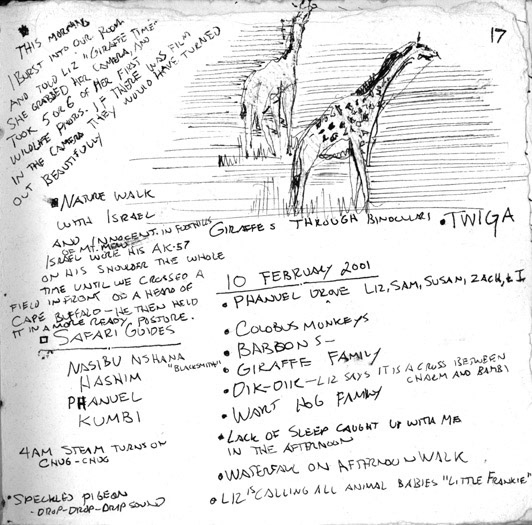 17
THIS MORNING
I BURST INTO OUR ROOM
AND TOLD LIZ "GIRAFFE TIME"
SHE GRABBED HER CAMERA, AND
TOOK 5 OR 6 OF HER FIRST
WILDLIFE PHOTOS. IF THERE WAS FILM
IN THE CAMERA THEY WOULD HAVE TURNED
OUT BEAUTIFULLY
NATURE WALK
WITH ISRAEL
AND INNOCENT. IN FOOTHILLS
OF MT. MERU
ISRAEL WORE HIS AK-57
ON HIS SHOULDER THE WHOLE
TIME UNTIL WE CROSSED A
FIELD IN FRONT OD A HEARD OF
CAPE BUFFALO - HE THEN HELD
IT IN A MORE READY POSTURE.
SAFARI GUIDES
NASIBU NSHANA
"BLACKSMITH"
HASHIM
PHANUEL
KUMBI
4AM STEAM TURNS ON
CHUG-CHUG
• SPECKLED PIGEON
-DROP-DROP-DROP SOUND
GIRAFFES THROUGH BINOCULARS • TWIGA
10 FEBRUARY 2001
• PHANUEL DROVE LIZ, SAM, SUSAN, ZACH, & I
• COLOBUS MONKEYS
• BABBONS -
• GIRAFFE FAMILY
• DIK-DIK - LIZ SAYS IT IS A CROSS BETWEEN
CHARM AND BAMBI
• WART HOG FAMILY
• LACK OF SLEEP CAUGHT UP WITH ME
IN THE AFTERNOON
• WATERFALL ON AFTERNOON WALK
• LIZ IS CALLING ALL ANIMAL BABIES "LITTLE FRANKIE"